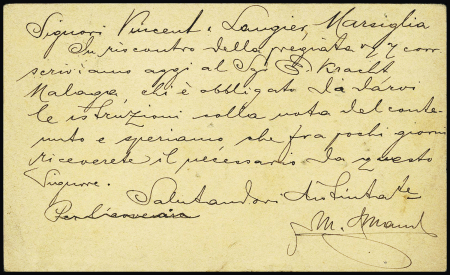 Signori Vincent & Laugier, Marsiglia
In riscontro della pregiata 
scriviamo oggi al Sgr Kracht
Malaga chi è obbligato da darvi
le istruzioni sulla nota del conte-
nuto e speriamo che fra pochi giorni
riceverete il necessario da questo
Signore.
Salutandovi distintate
M.